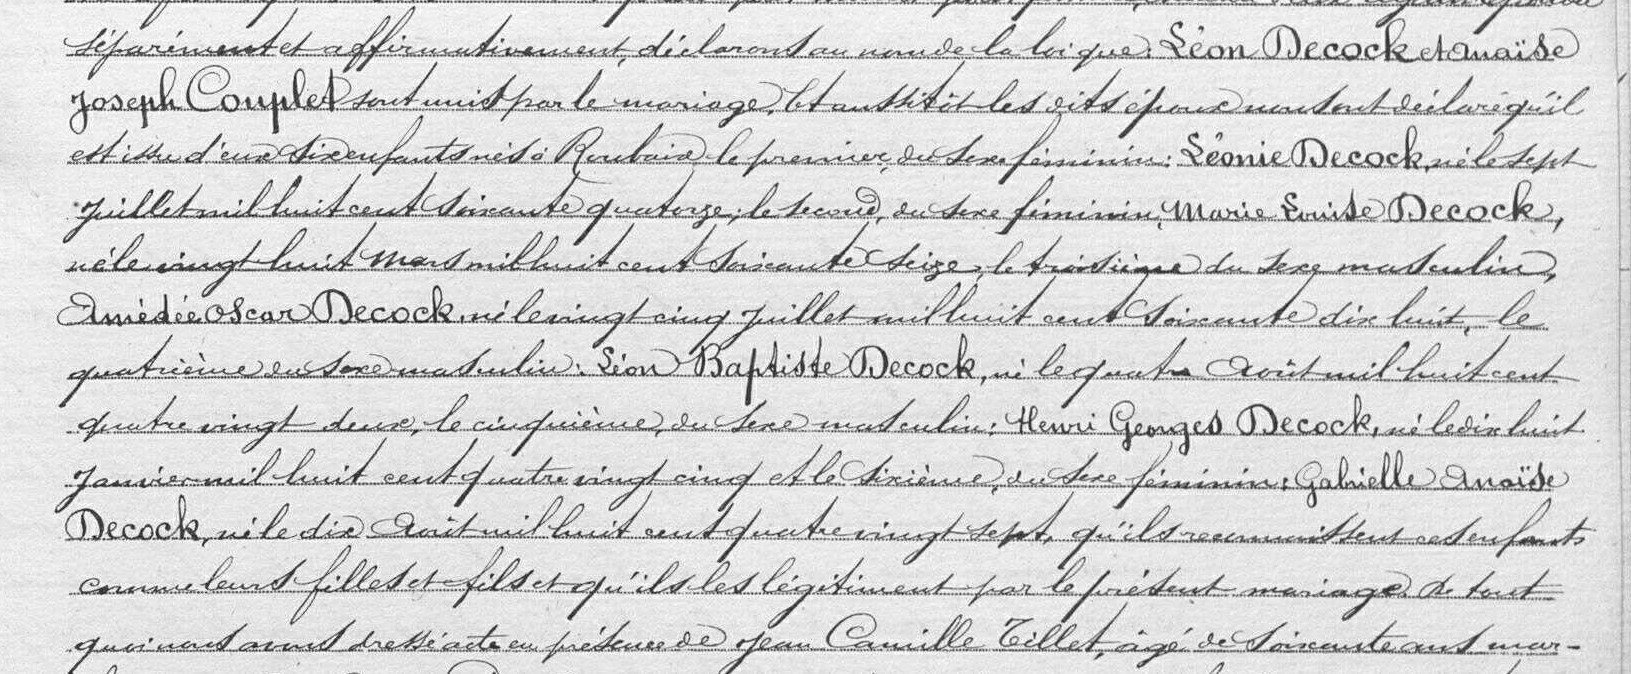 séparément et affirmativement, déclarons au nom de la loi que: Léon Decock et Anaïse
Joseph Couplet sont unis par le mariage. Et aussitôt les dits époux nous ont déclaré qu'il
est issu d'eux six enfants nés à Roubaix le premier, du sexe féminin: Léonie Decock, né le sept
juillet mil huit cent soixante quatorze, le second, du sexe féminin, Marie Louise Decock,
né le vingt huit Mars mil huit cent soixante seize, le troisième du sexe masculin,
Amédée Oscar Decock, né le vingt cinq juillet mil huit cent soixante dix huit, le
quatrième du sexe masculin: Léon Baptiste Decock, né le quatre Août mil huit cent
quatre vingt deux, le cinquième, du sexe masculin: Henri Georges Decock, né le dix huit
janvier mil huit cent quatre vingt cinq et le sixième, du sexe féminin: Gabrielle Anaïse
Decock, né le dix Août mil huit cent quatre vingt sept, qu'ils reconnaissent ces enfants
comme leurs filles et fils et qu'ils les légitiment par le présent mariage. De tout
quoi nous avons dressé acte en présence de Jean Camille Tillet, âgé de soixante ans mar-